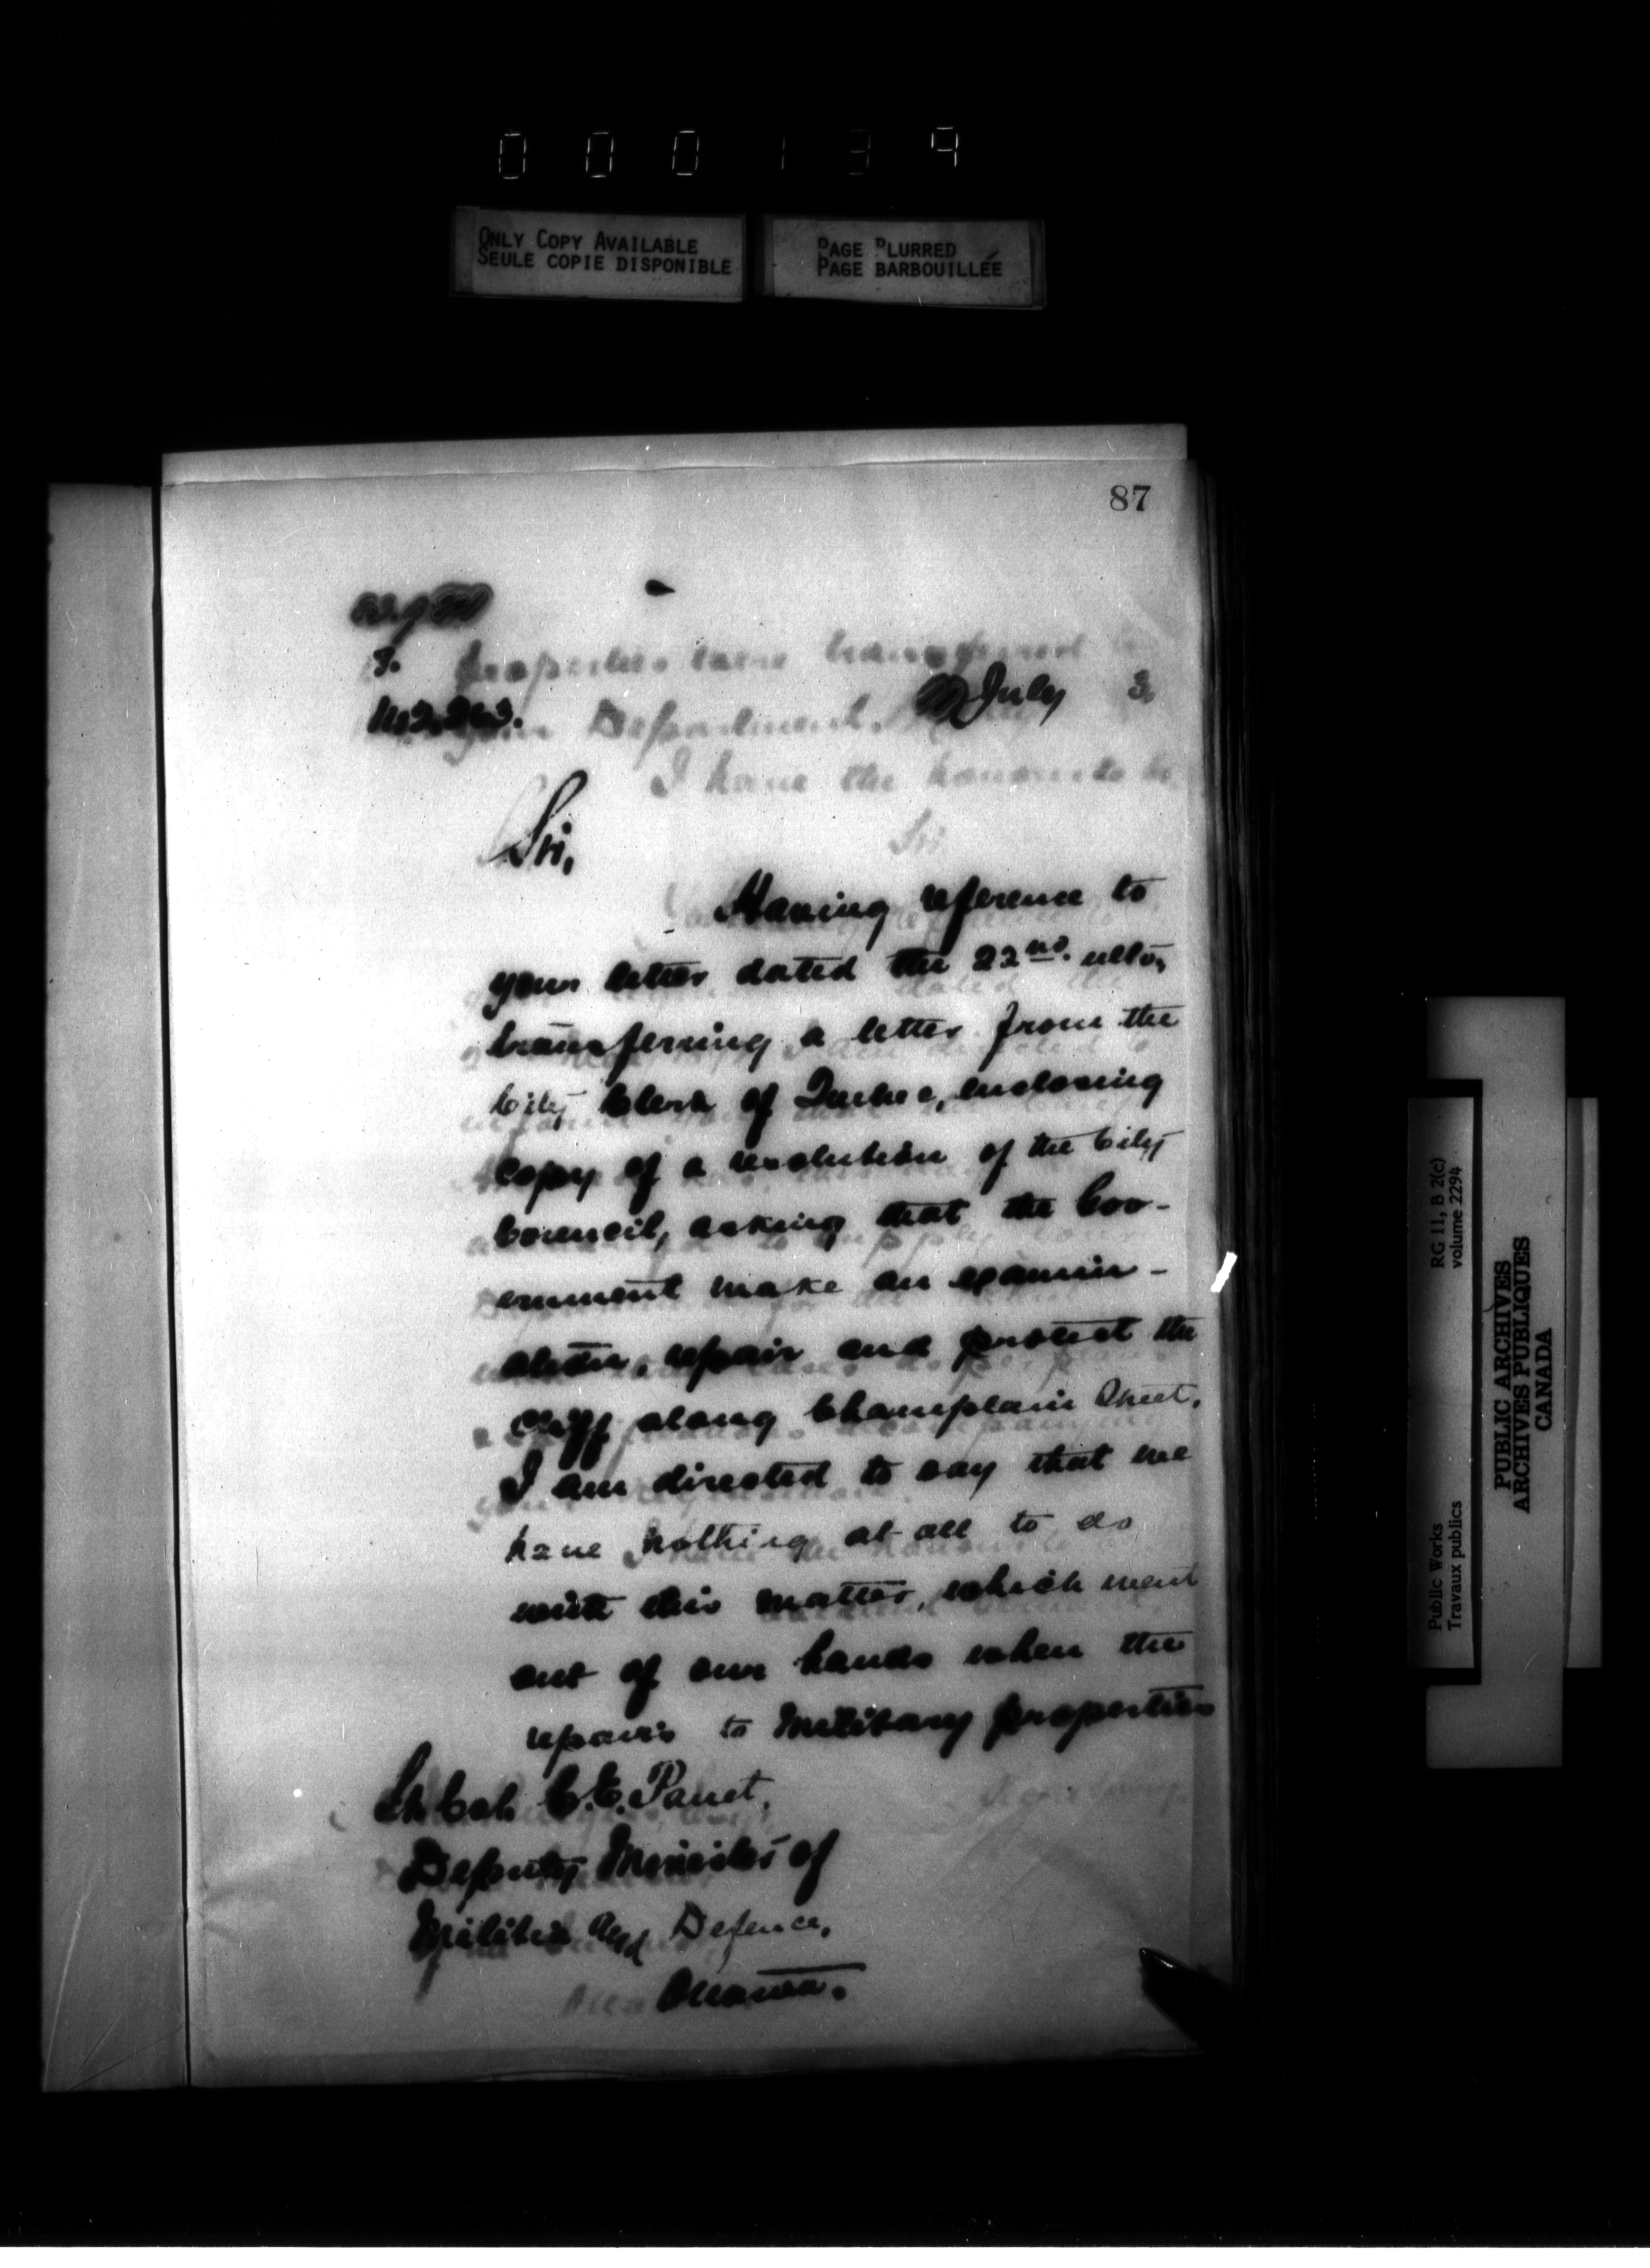 000139
ONLY COPY AVAILABLE
SEULE COPIE DISPONIBLE
PAGE BLURRED
PAGE BARBOUILLÉE
87
July 3.
Sir,
Having reference to
your letter dated the 22nd. ulto,
transferring a letter from the
City Clerk of Quebec, enclosing
copy of a resolution of the City
Council, asking that the Gov-
ernment make an examin-
ation, repair and protect the
Cliff along Champlain Street,
I am directed to say that we
have nothing at all to do
with this matter, which went
out of our hands when the
repairs to Military properties
Lt. Col. C. E. Panet,
Deputy Minister of
Militia and Defence,
Ottawa.
RG 11, B 2(c)
volume 2294
Public Works
Travaux publics
PUBLIC ARCHIVES
ARCHIVES PUBLIQUES
CANADA